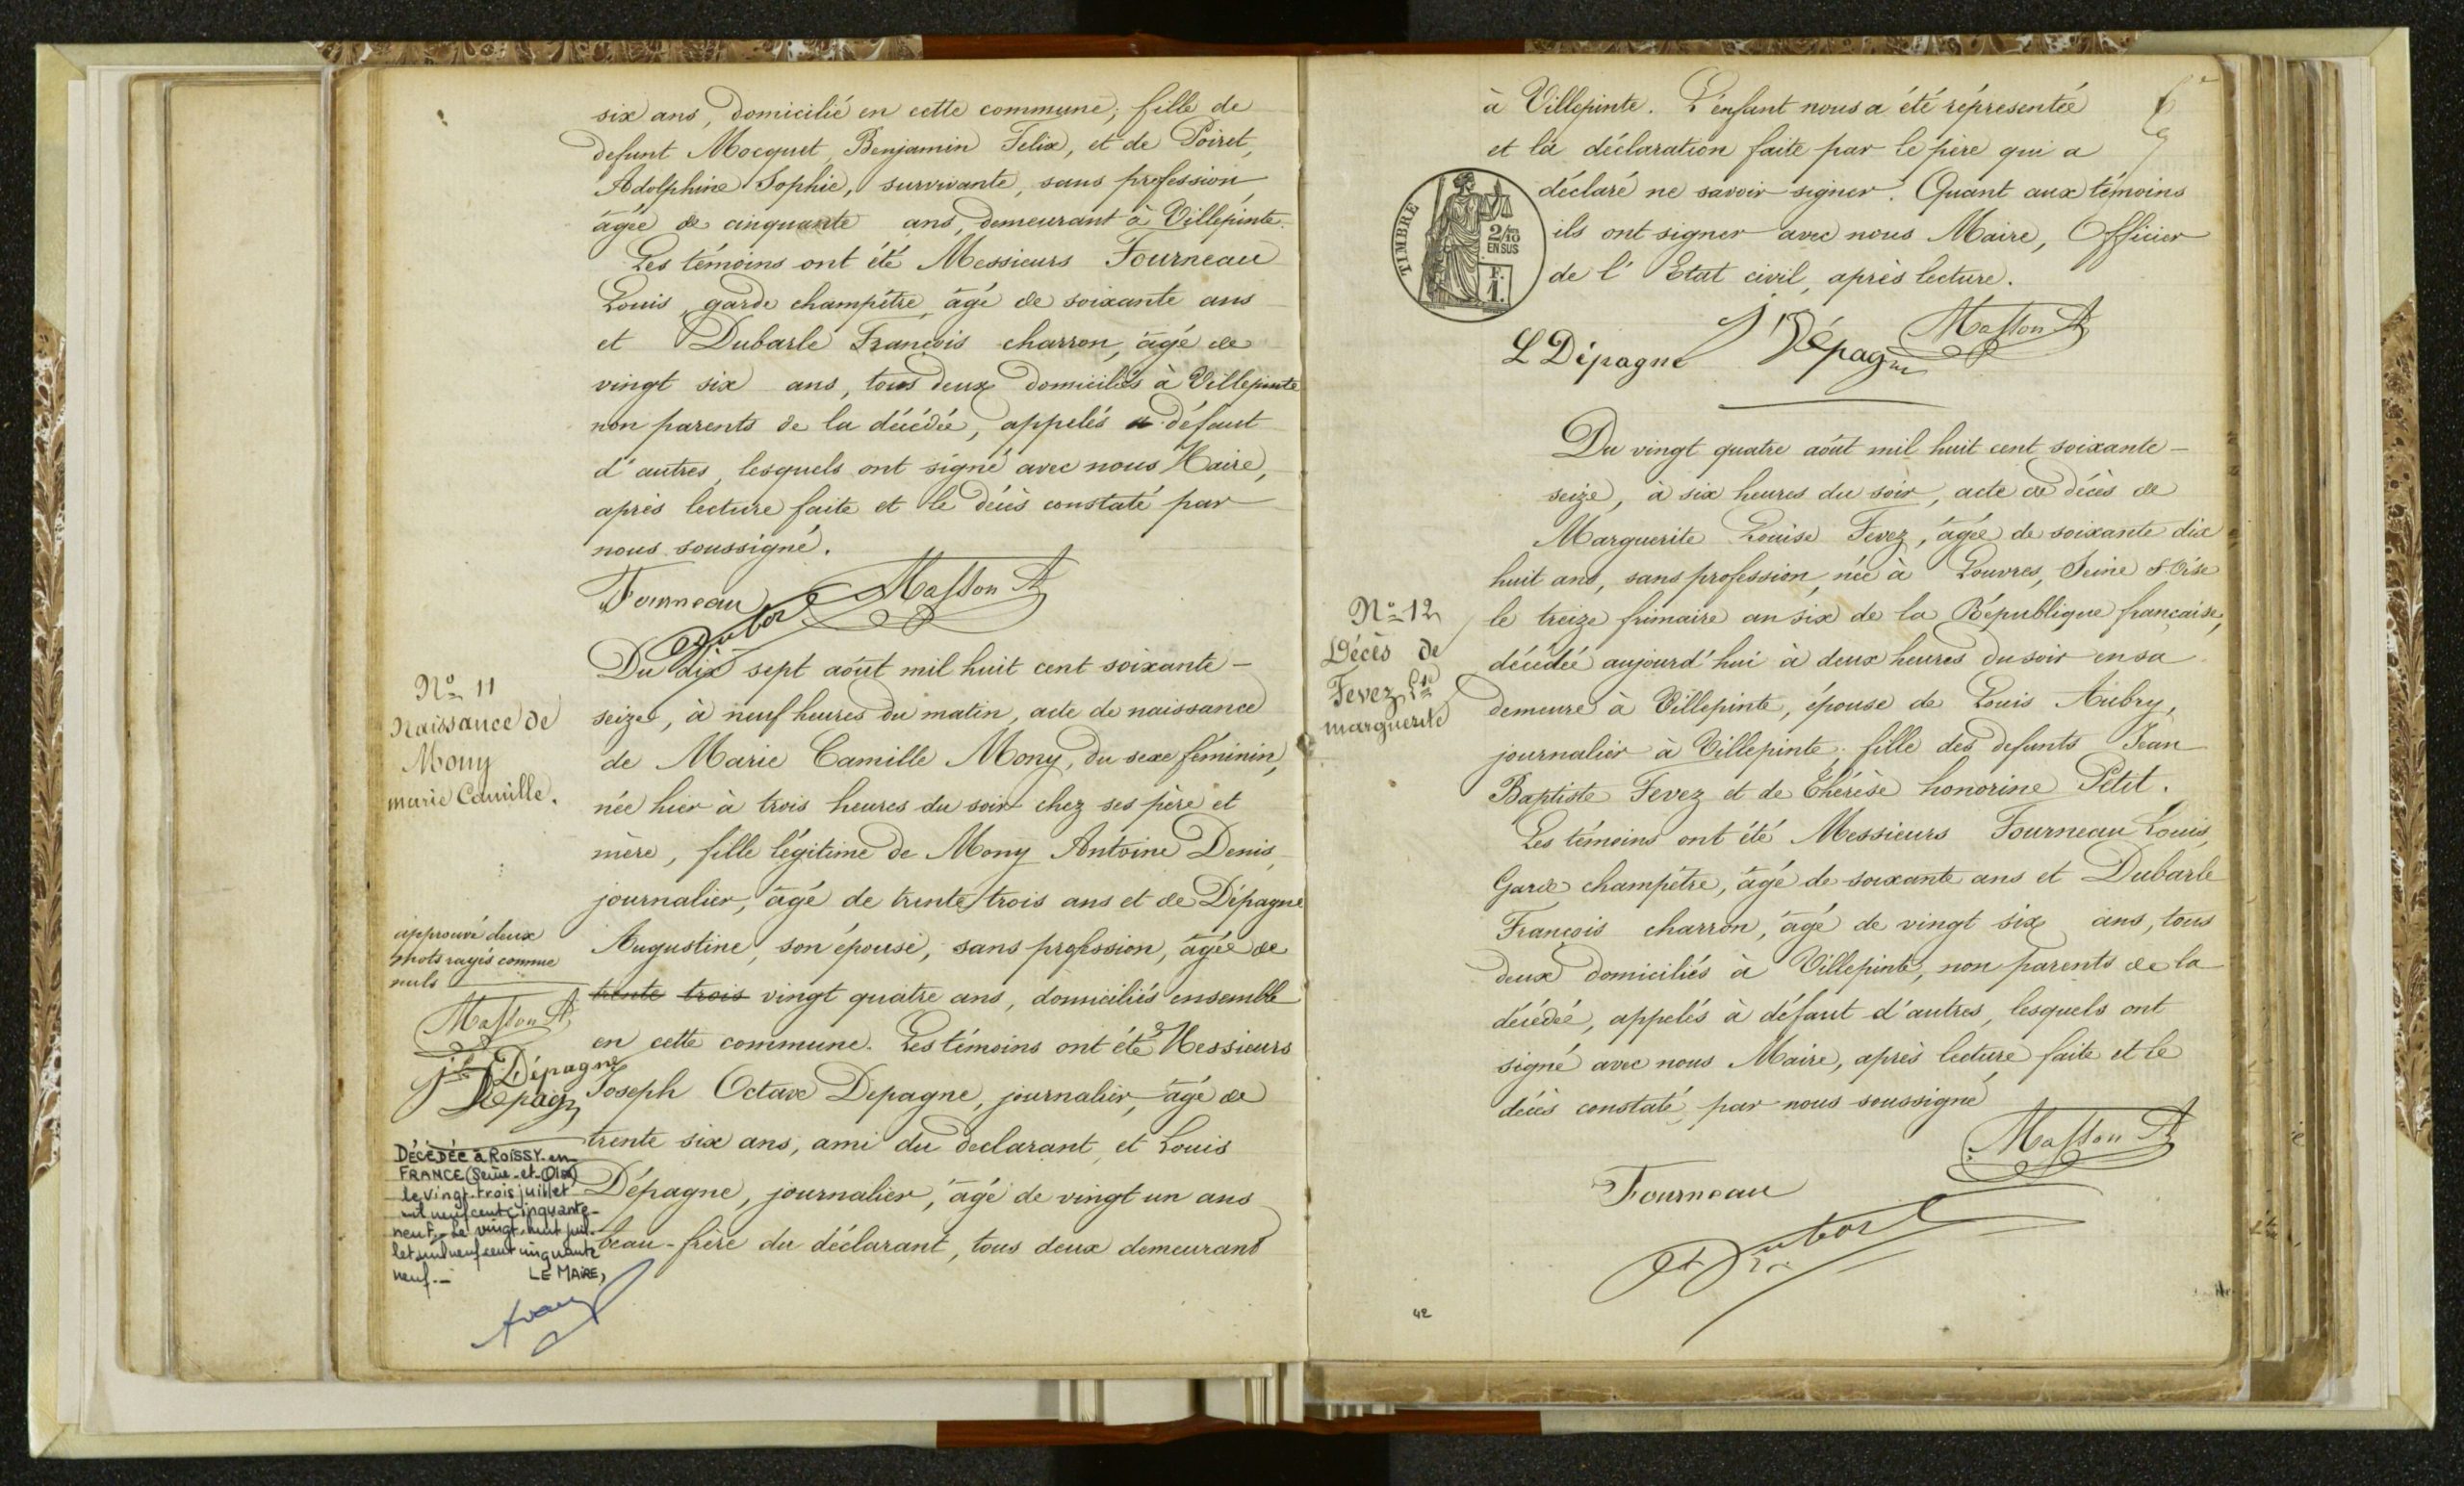 six ans, domicilié en cette commune; fille de
defunt Mocquet, Benjamin Felix, et de Poiret,
Adolphine Sophie, survivante, sans profession,
âgée de cinquante ans, demeurant à Villepinte.
Les témoins ont été Messieurs Fourneau
Louis, garde champêtre, âgé de soixante ans
et Dubarle François charron, âgé de
vingt six ans, tous deux domiciliés à Villepinte
non parents de la décédée, appelés à défaut
d'autres, lesquels ont signé avec nous Maire,
après lecture faite et le décès constaté par
nous soussigné.
Fourneau Masson A
Dubarle
Nº 11
Naissance de
Mony
marie Camille.
Du dix sept août mil huit cent soixante-
seize, à neuf heures du matin, acte de naissance
de Marie Camille Mony, du sexe féminin,
née hier à trois heures du soir chez ses père et
mère, fille légitime de Mony Antoine Denis,
journalier, âgé de trente trois ans et de Dépagne
Augustine, son épouse, sans profession, âgée de
trente trois vingt quatre ans, domiciliés ensemble
en cette commune. Les témoins ont été Messieurs
Joseph Octave Depagne, journalier, âgé de
trente six ans, ami du declarant, et Louis
Dépagne, journalier, âgé de vingt un ans
beau-frère du déclarant, tous deux demeurant
approuvé deux
mots rayés comme
nuls
Masson A
Dépagne
Dépagne
DÉCÉDÉE à ROISSY-en-
FRANCE (Seine-et-Oise)
le vingt-trois juillet
mil neuf cent cinquante-
neuf.- Le vingt-huit juil-
let mil neuf cent cinquante
neuf.-
LE MAIRE,
à Villepinte. L'enfant nous a été réprésentée
et la déclaration faite par le père qui a
déclaré ne savoir signer. Quant aux témoins
ils ont signer avec nous Maire, Officier
de l'Etat civil, après lecture.
TIMBRE
2/10
EN SUS
F.
1.
L Dépagne J Dépagne Masson A
Nº 12
Décès de
Fevez Lse
marguerite
Du vingt quatre août mil huit cent soixante-
seize, à six heures du soir, acte de décès de
Marguerite Louise Fevez, âgée de soixante dix
huit ans, sans profession, née à Louvres, Seine & Oise
le treize frimaire an six de la République française,
décédée aujourd'hui à deux heures du soir en sa
demeure à Villepinte, épouse de Louis Aubry,
journalier à Villepinte, fille des defunts Jean
Baptiste Fevez et de Thérèse honorine Petit.
Les témoins ont été Messieurs Fourneau Louis,
Garde champêtre, âgé de soixante ans et Dubarle
François charron, âgé de vingt six ans, tous
deux domiciliés à Villepinte, non parents de la
décédée, appelés à défaut d'autres, lesquels ont
signé avec nous Maire, après lecture faite et le
décès constaté par nous soussigné
Masson A
Fourneau
Dubarle
42